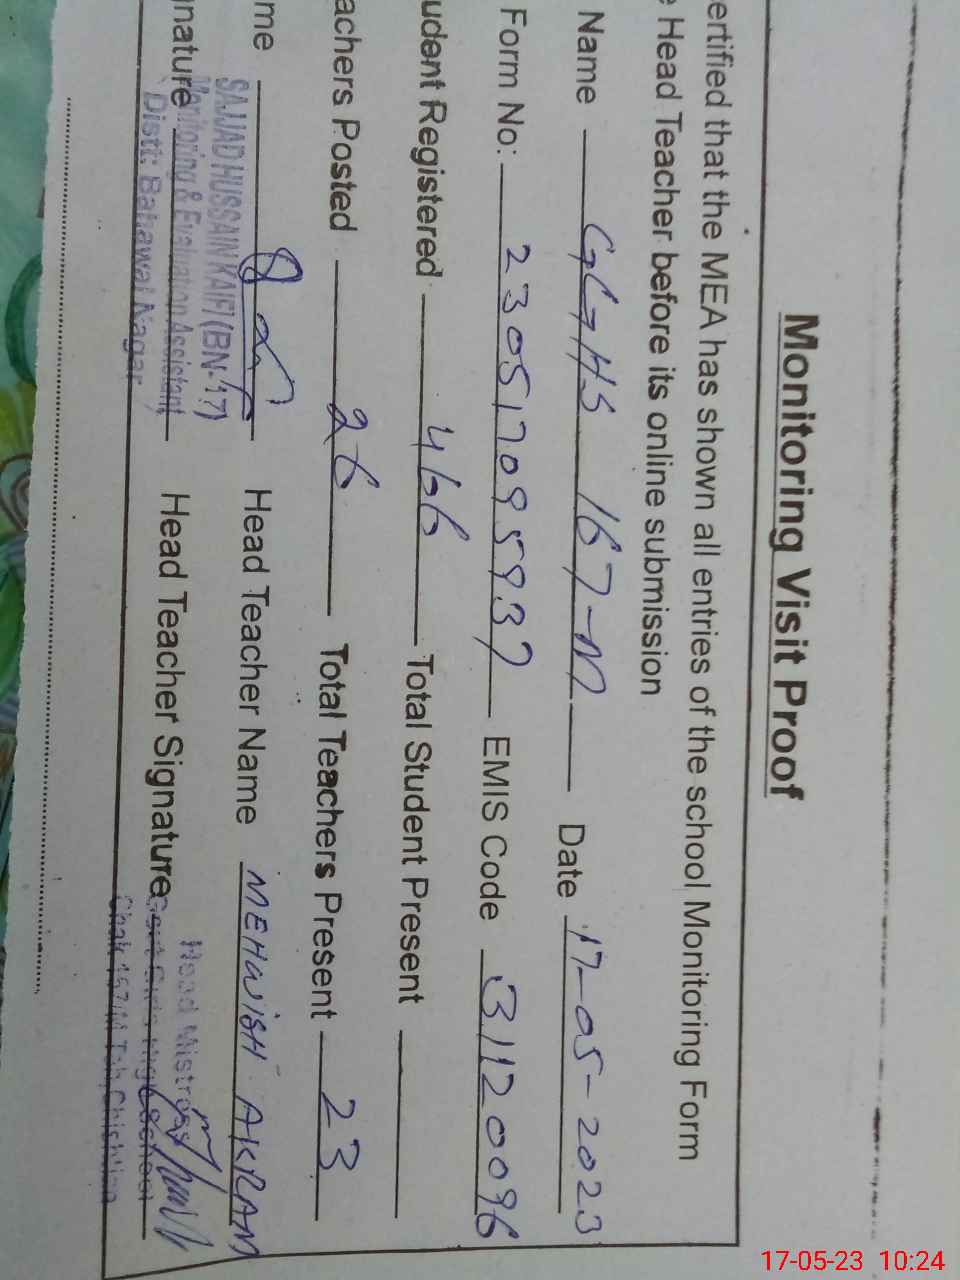 Monitoring Visit Proof
ertified that the MEA has shown all entries of the school Monitoring Form
e Head Teacher before its online submission
Name GGHS 167-M Date 17-05-2023
Form No: 23051709593? EMIS Code 31120096
udent Registered 466 Total Student Present
achers Posted 26 Total Teachers Present 23
me Head Teacher Name MEHWISH AKRAM
SAJJAD HUSSAIN KAIFI (BN-17)
gnature Head Teacher Signature
Monitoring & Evaluation Assistant
Distt: Bahawal Nagar
Head Mistress
Govt Girls High School
Chak 167/M Teh, Chishtian
17-05-23 10:24